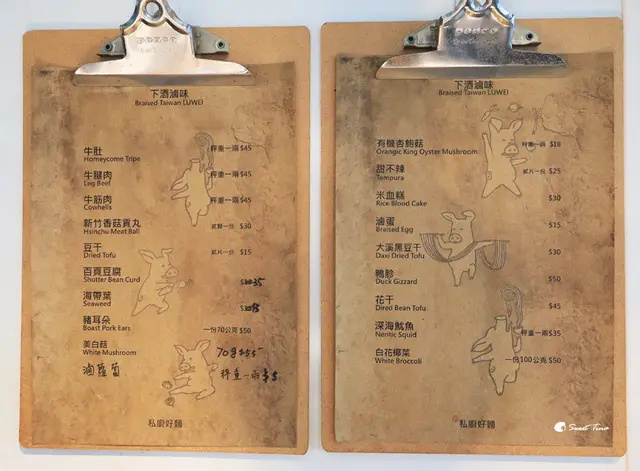 下酒滷味
Braised Taiwan LUWEI
牛肚 秤重一兩 $45
Homeycome Tripe
牛腱肉 秤重一兩 $45
Leg Beef
牛筋肉 秤重一兩 $45
Cowhells
新竹香菇貢丸 $30
Hsinchu Meat Ball
豆干 貳片一份 $15
Dried Tofu
百頁豆腐 35
Shutter Bean Curd
海帶葉
Seaweed
豬耳朵 一份70公克 $50
Boast Pork Ears
美白菇 70g $55
White Mushroom
滷蘿蔔 秤重一兩 $5
私廚好麵
下酒滷味
Braised Taiwan LUWEI
有機杏鮑菇 秤重一兩 $18
Orangic King Oyster Mushroom
甜不辣 貳片一份 $25
Tempura
米血糕 $30
Rice Blood Cake
滷蛋 $15
Braised Egg
大溪黑豆干 $30
Daxi Dried Tofu
鴨胗 $50
Duck Gizzard
花干 $45
Dired Bean Tofu
深海魷魚 秤重一兩 $35
Neritic Squid
白花椰菜 一份100公克 $50
White Broccoli
私廚好麵
Sweet Tina